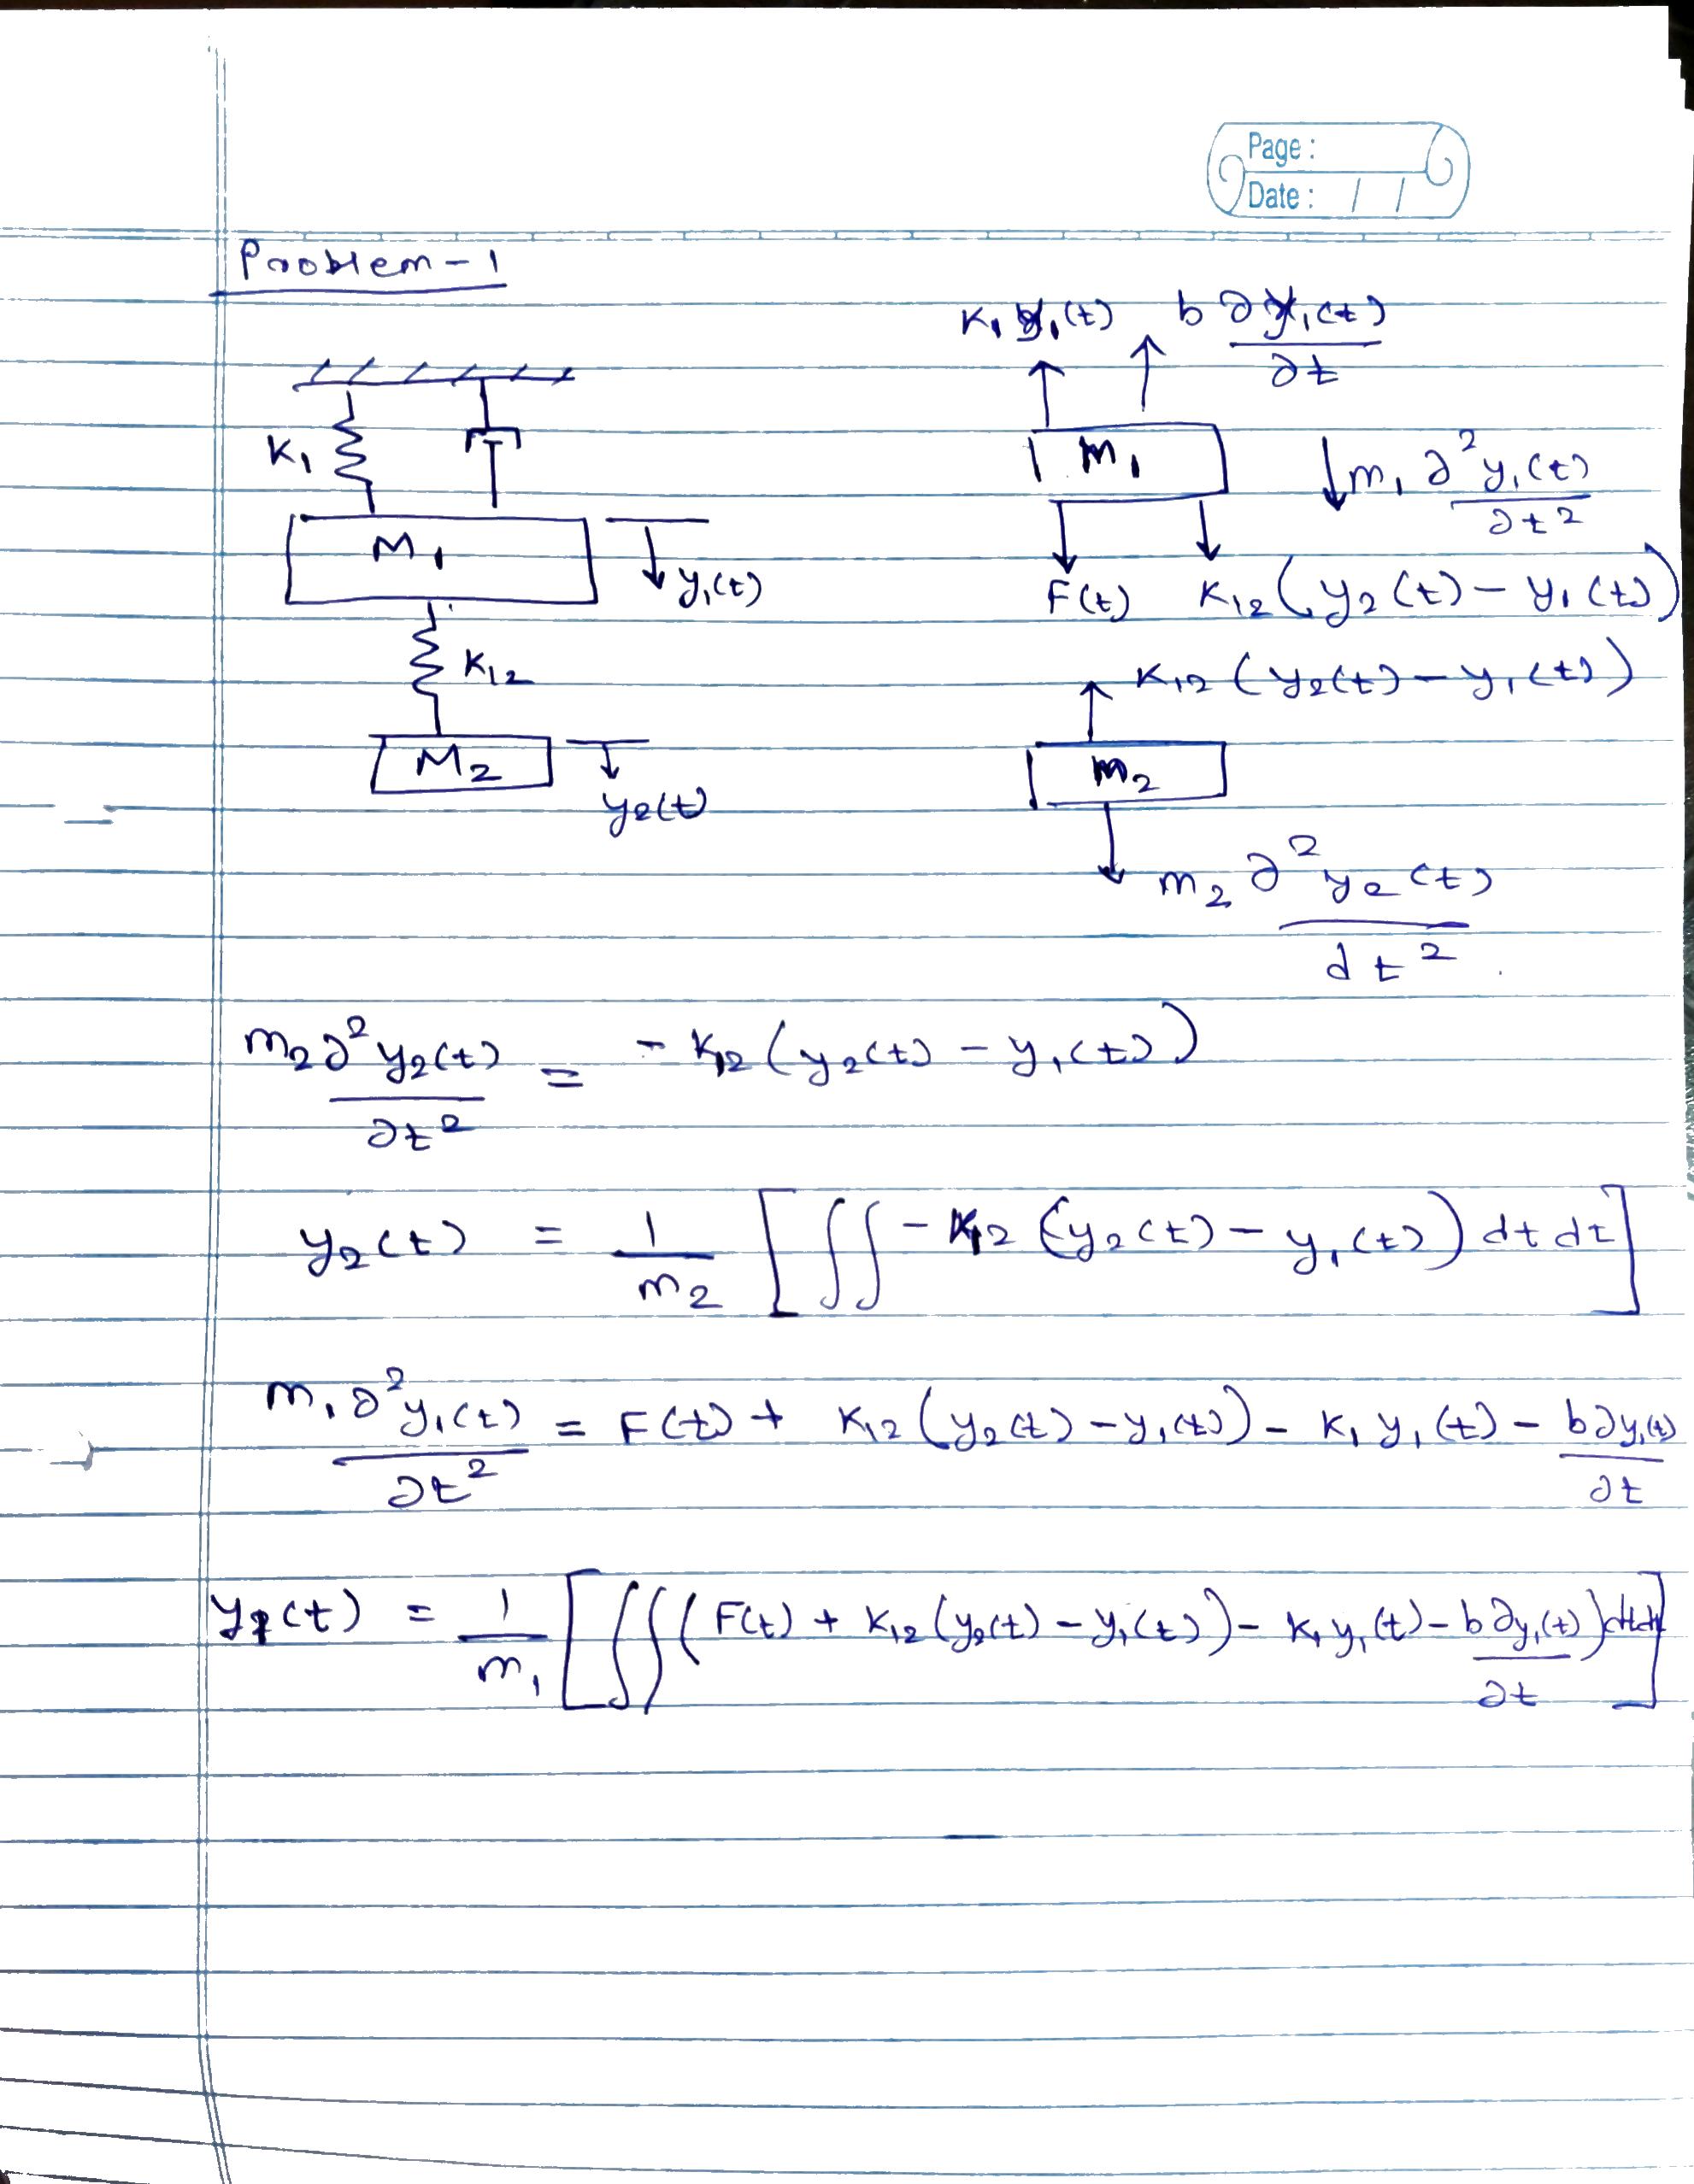 Page :
Date : / /
Problem - 1
K₁ y₁(t) b ∂y₁(t)/∂t
K₁
M₁
y₁(t)
m₁
↓ m₁ ∂²y₁(t)/∂t²
F(t) K₁₂ (y₂(t) - y₁(t))
K₁₂
K₁₂ (y₂(t) - y₁(t))
M₂
y₂(t)
m₂
m₂ ∂²y₂(t)/dt²
m₂ ∂²y₂(t)/∂t² = - K₁₂ (y₂(t) - y₁(t))
y₂(t) = 1/m₂ [∫∫ - K₁₂ (y₂(t) - y₁(t)) dt dt]
m₁ ∂²y₁(t)/∂t² = F(t) + K₁₂ (y₂(t) - y₁(t)) - K₁ y₁(t) - b∂y₁(t)/∂t
y₁(t) = 1/m₁ [∫∫ (F(t) + K₁₂ (y₂(t) - y₁(t)) - K₁ y₁(t) - b ∂y₁(t)/∂t) dt dt]